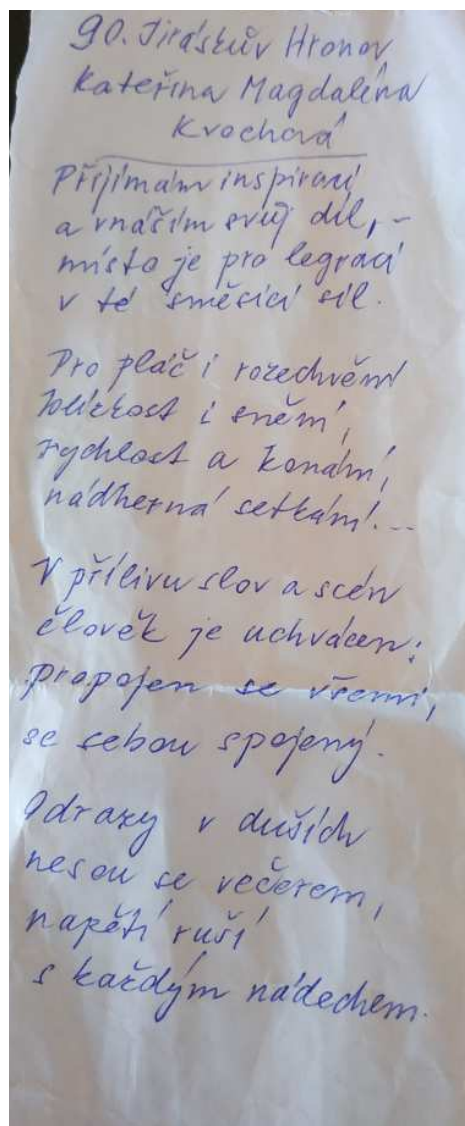 90. Jiráskův Hronov
Kateřina Magdaléna
Kvochová
Přijímám inspiraci
a vnáším svůj díl, –
místo je pro legraci
v té směsici sil.
Pro pláč i rozechvění
blízkost i snění,
rychlost a konání,
nádherná setkání...
V přílivu slov a scén
člověk je uchvácen;
propojen se všemi,
se sebou spojený.
Odrazy v duších
nesou se večerem,
napětí ruší
s každým nádechem.